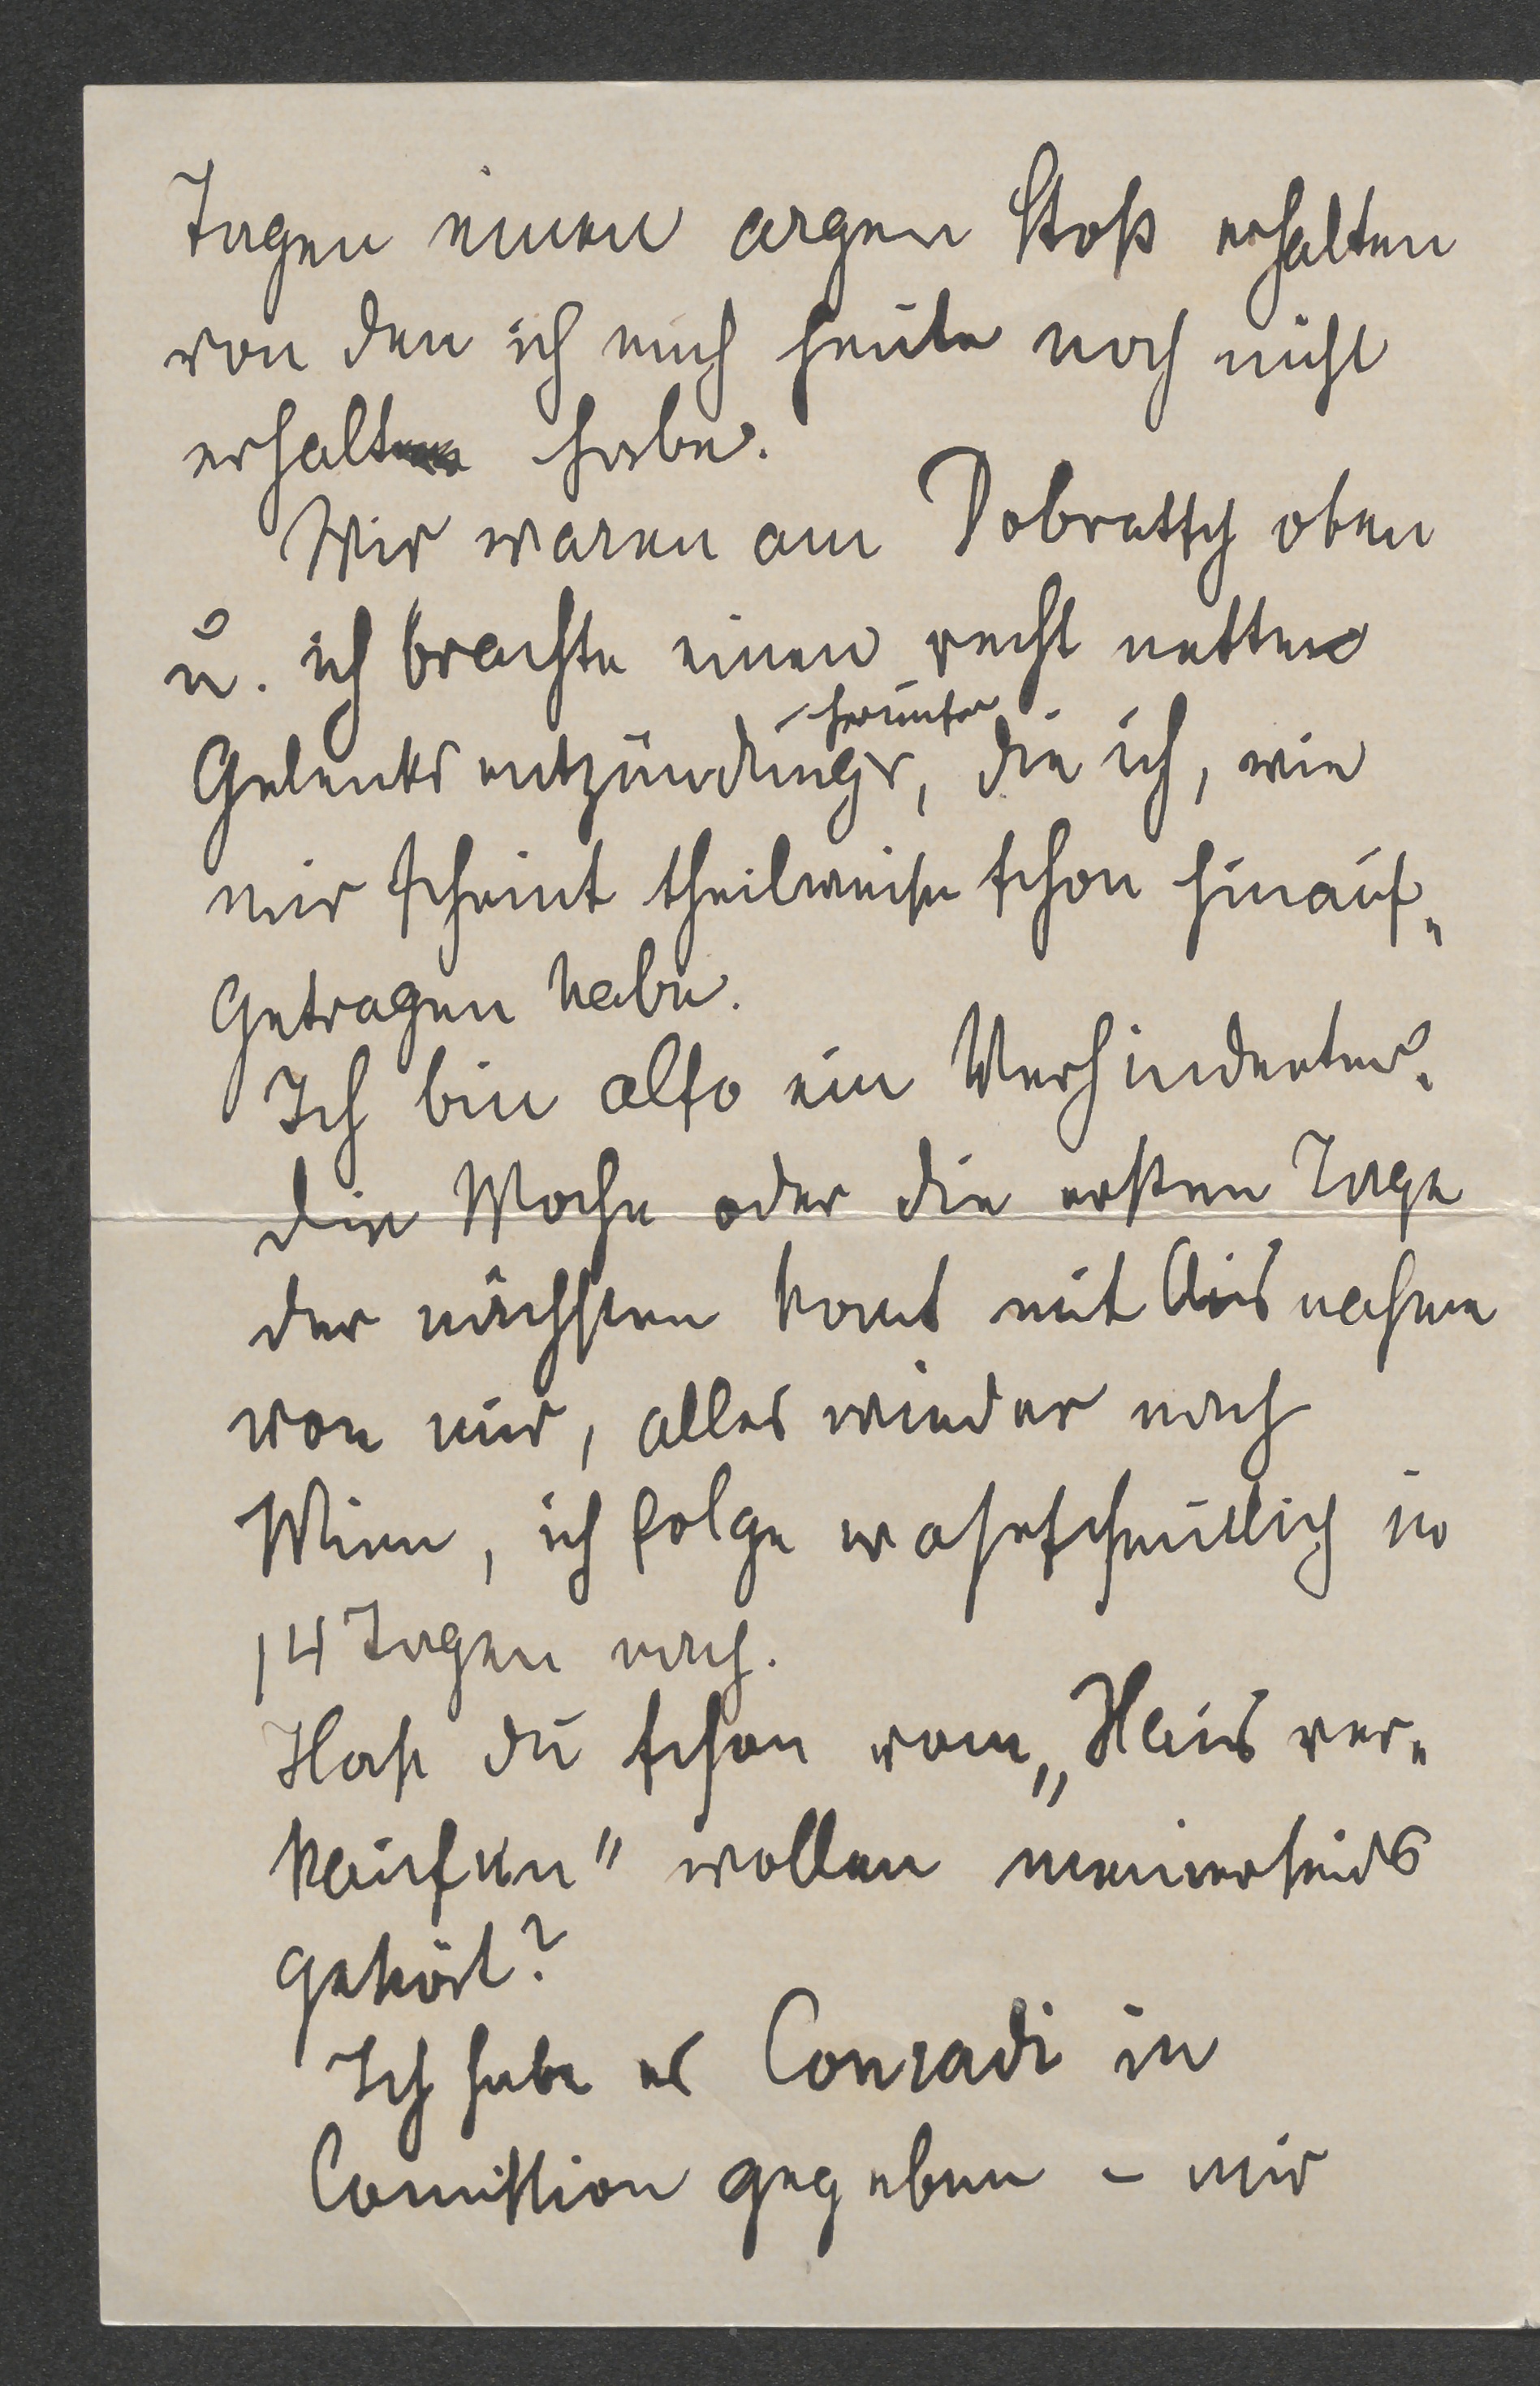 Tagen einen argen Stoß erhalten
von den ich mich heute noch nicht
erhalt habe.
Wir waren am Dobratsch oben
u. ich brachte einen recht netten
herunter
Gelenksentzündungs, die ich, wie
mir scheint theilweise schon hinauf„
getragen habe.
Ich bin also ein Verhinderter.
Die Woche oder die ersten Tage
der nächsten komt mit Ausnahme
von mir, alles wieder nach
Wien, ich folge wahrscheinlich in
14 Tagen nach.
Hast du schon vom „Haus ver„
kaufen" wollen meinerseids
gehört?
Ich habe es Conradi in
Comission gegeben – mir